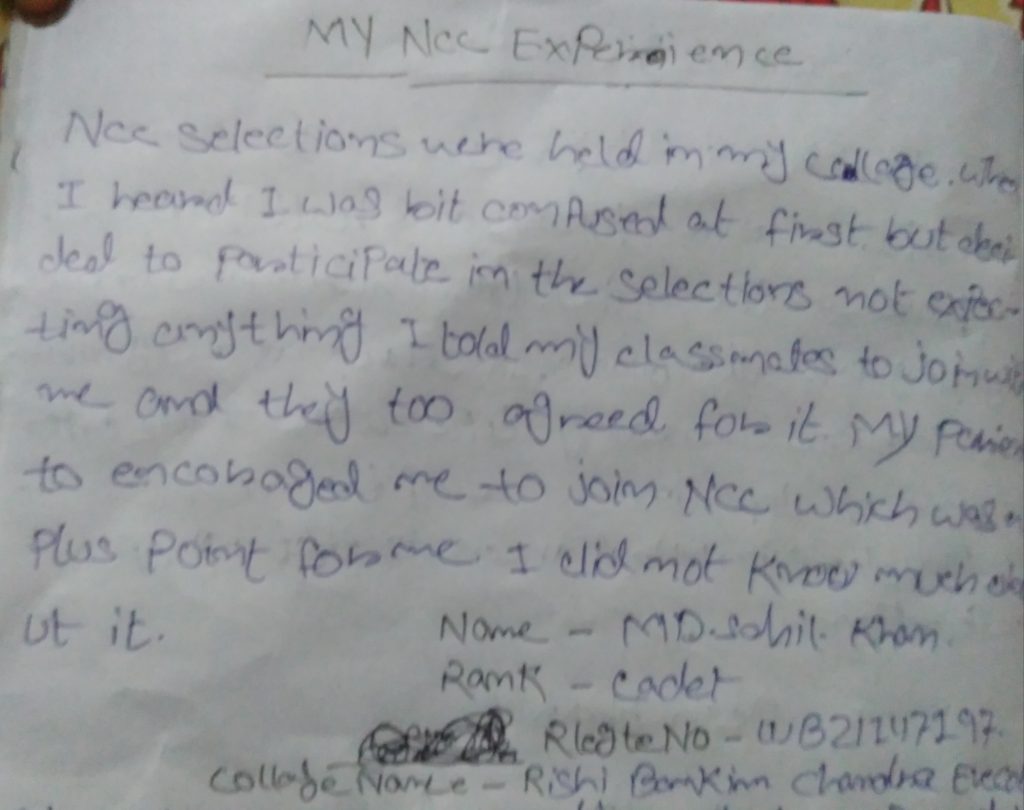 MY Ncc Experience
Ncc selections were held in my collage. when
I heared I was bit confused at first but deci
ded to participate in the selections not expec-
ting anything I told my classmates to join with
me and they too agreed for it My paren
to encoraged me to join Ncc which was a
Plus Point for me I did not know much abo
ut it.
Name - MD.Sohil. Khan.
Rank - Cadet
RlegteNo - WB21147197.
Collage Name - Rishi Bankim Chandra